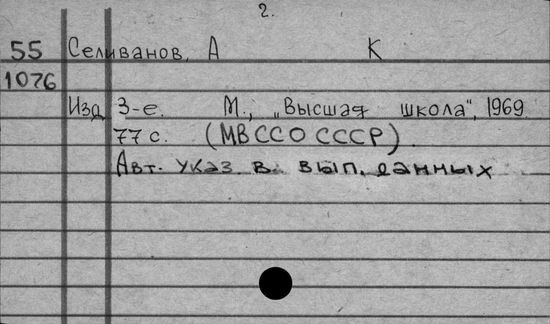 2.
55 Селиванов, А К
1076
Изд 3-е. М., „Высшая школа", 1969
77 с. (МВССО СССР).
Авт. указ. в вып. данных